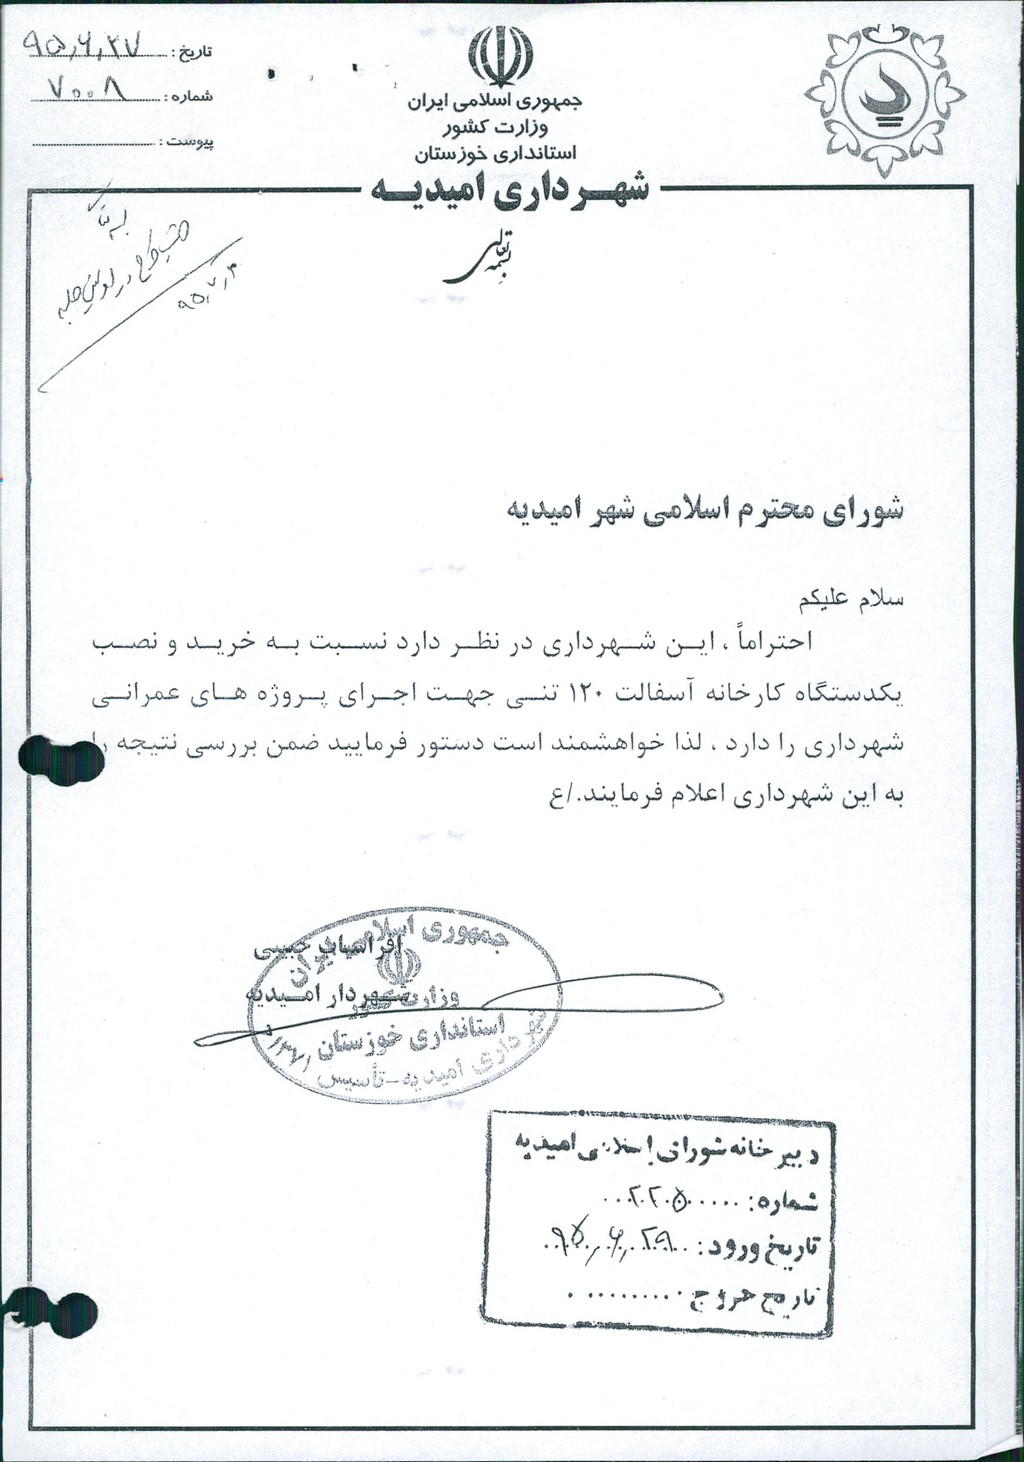 تاریخ : ۹۵٫۶٫۲۷
شماره : ۷۰۰۸
پیوست :
جمهوری اسلامی ایران
وزارت کشور
استانداری خوزستان
شهرداری امیدیه
بسمه تعالی
۹۵٫۷٫۳
شورای محترم اسلامی شهر امیدیه
سلام علیکم
احتراماً ، این شهرداری در نظر دارد نسبت به خرید و نصب
یکدستگاه کارخانه آسفالت ۱۲۰ تنی جهت اجرای پروژه های عمرانی
شهرداری را دارد ، لذا خواهشمند است دستور فرمایید ضمن بررسی نتیجه را
به این شهرداری اعلام فرمایند./ع
افراسیاب حبیبی
شهردار امیدیه
جمهوری اسلامی ایران
وزارت کشور
استانداری خوزستان
شهرداری امیدیه - تأسیس (۱۳۷۱)
دبیرخانه شورای اسلامی امیدیه
شماره: ۲۲۵
تاریخ ورود: ۹۵٫۶٫۲۹
تاریخ خروج